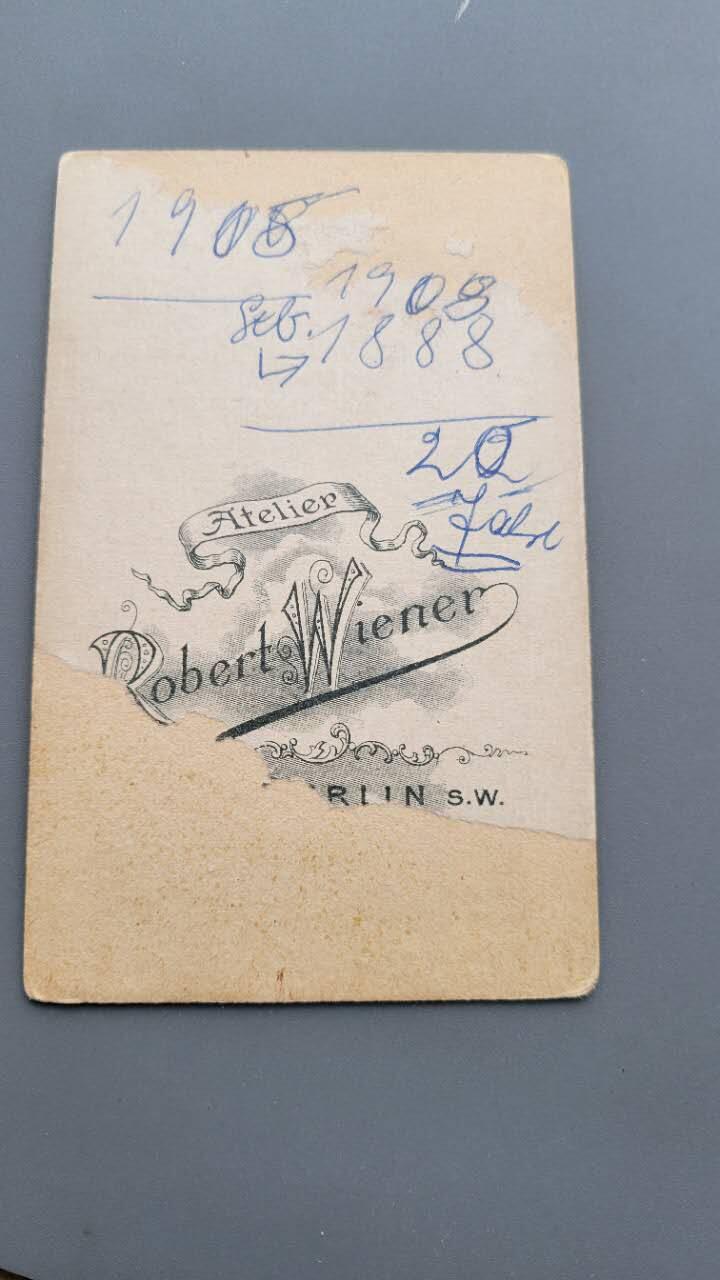 1908
1908
geb. 1888
20
Jahre
Atelier
Robert Wiener
RLIN S.W.